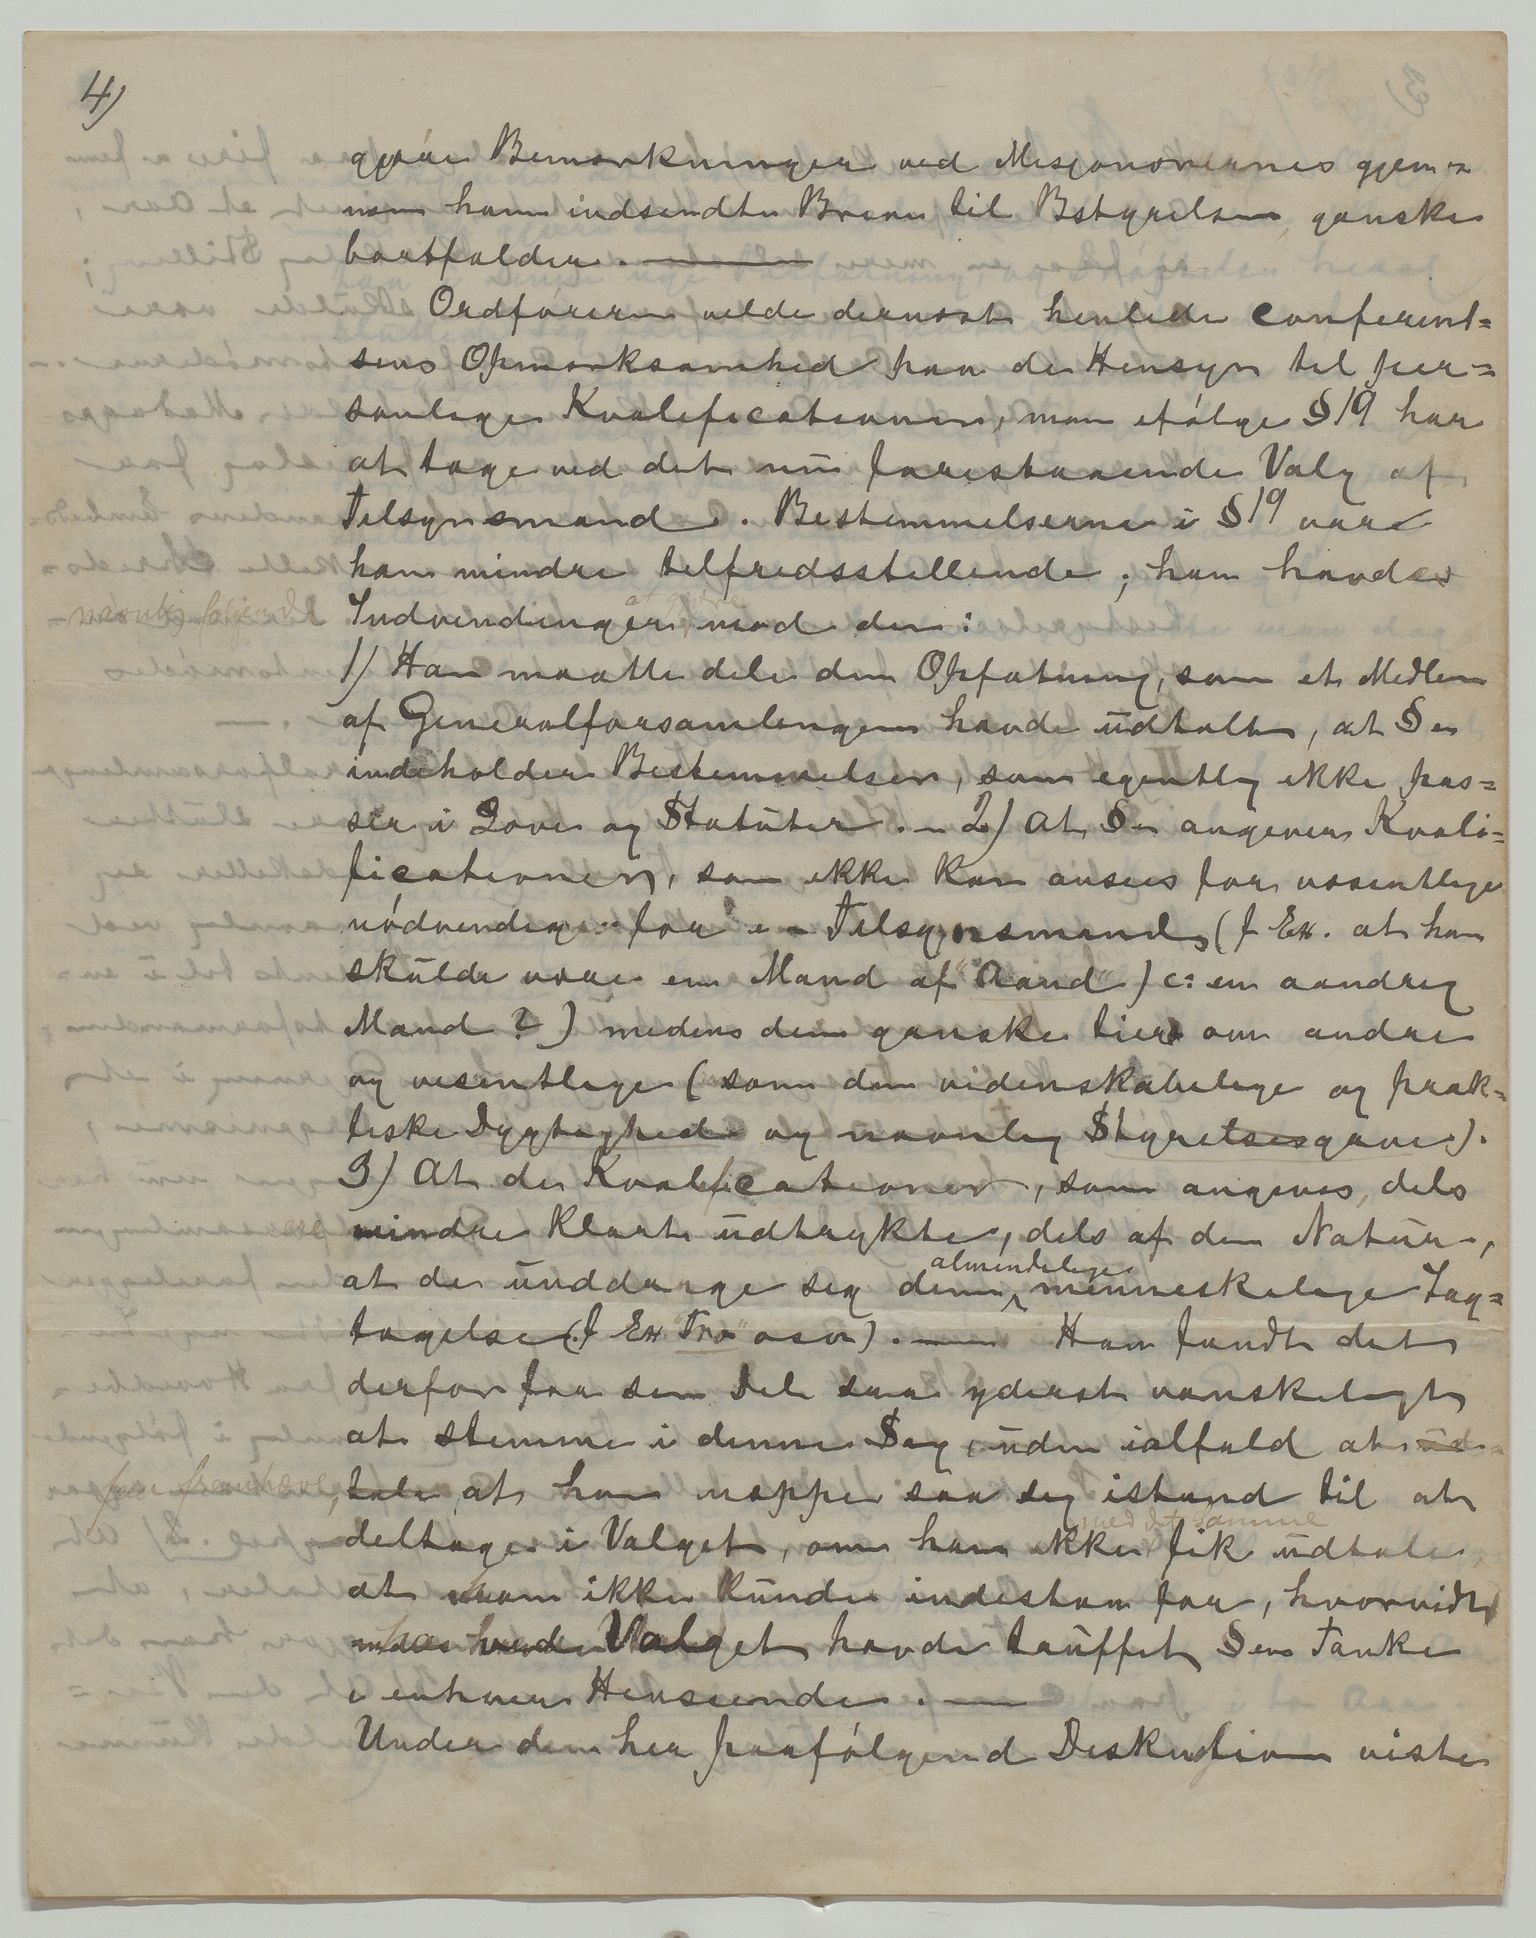 4)
gjøre Bemærkninger ved Missjonærernes gjen=
nem ham indsendte Breve til Bstyrelsen ganske
bortfalder. —
Ordføreren vilde dernæst henlede Conferent=
sens Opmærksomhed paa de Hensyn til per=
sonlige Kvalificationer, man ifølge § 19 har
at tage ved det nu forestaaende Valg af
Tilsynsmand. Bestemmelserne i § 19 vare
ham mindre tilfredsstillende; han havde
navnlig følgende
at gjøre
Indvendinger mod den:
1/ Han maatte dele den Opfatning, som et Medlem
af Generalforsamlingen havde udtalt, at §en
indeholder Bestemmelser, som egentlig ikke pas=
ser i Love og Statuter. — 2) At §en angiver Kvali=
ficationer, som ikke kan ansees for væsentlige
nødvendige for en Tilsynsmand (f Ex. at han
skulde være en Mand af "Aand") c: en aandrig
Mand ?) medens den ganske tier om andre
og vesentlige (som den videnskabelige og prak=
tiske Dygtighed og navnlig Styrelsesgave).
3/ At de Kvalificationer, som angives, dels
ere
mindre klart udtrykte, dels af den Natur,
almindelige
at de unddrage seg den menneskelige Iag=
tagelse (f Ex "Tro" osv). — Han fandt det
derfor for sin Del saa yderst vanskeligt
at stemme i denne Sag, uden ialfald at ud-
faa fremhæve,
tale, at han neppe saa seg istand til at
med det samme
deltage i Valget, om han ikke fik udtale,
at han ikke kunde indestaa for, hvorvidt
han havde Valget havde truffet §ens Tanke
i enhver Henseende. —
Under den her paafølgend Diskustion viste